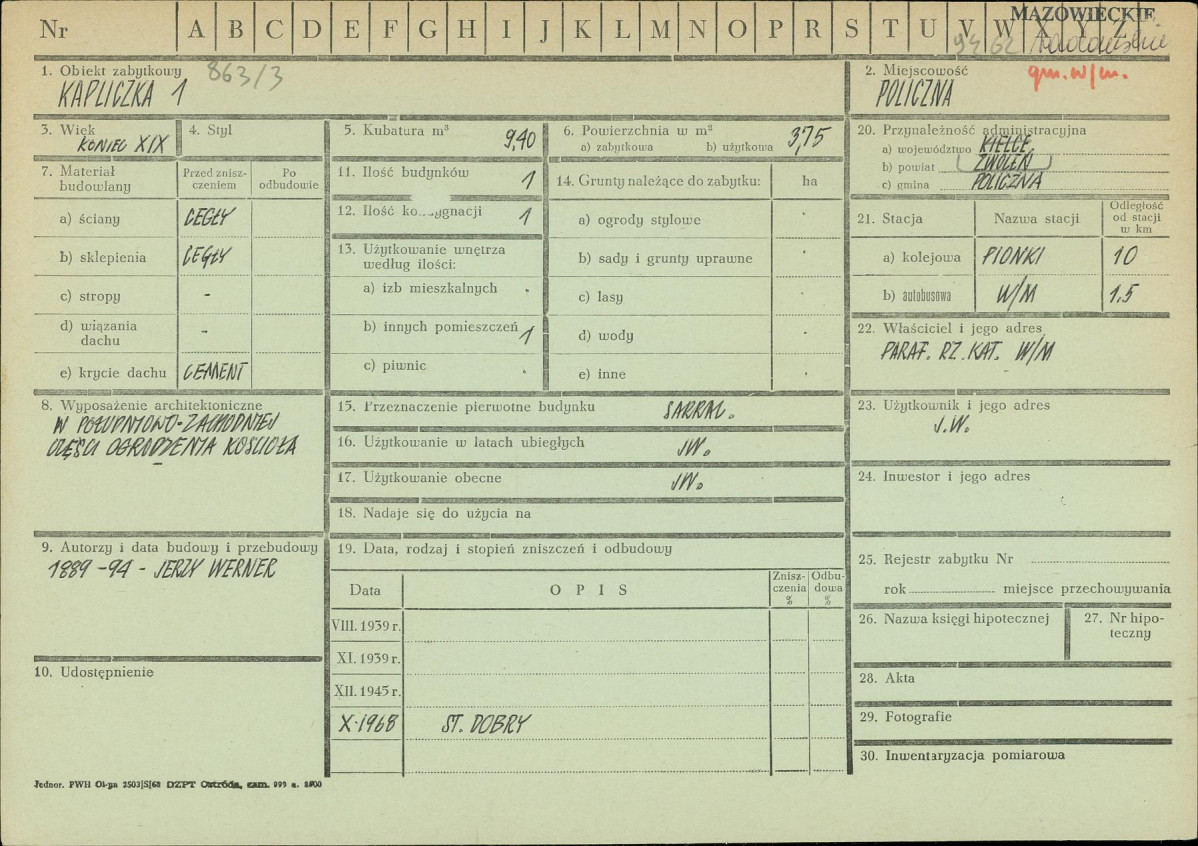 Nr A B C D E F G H I J K L M N O P R S T U V W X Y Z
MAZOWIECKIE
9462
1. Obiekt zabytkowy 863/3
KAPLICZKA 1
2. Miejscowość gm. w/m.
POLICZNA
3. Wiek
KONIEC XIX
4. Styl
5. Kubatura m³ 9,40
6. Powierzchnia w m² 3,75
a) zabytkowa b) użytkowa
20. Przynależność administracyjna
a) województwo KIELCE
b) powiat ZWOLEŃ
c) gmina POLICZNA
7. Materiał budowlany
Przed zniszczeniem
Po odbudowie
a) ściany CEGŁY
b) sklepienia CEGŁY
c) stropy -
d) wiązania dachu -
e) krycie dachu CEMENT
11. Ilość budynków 1
12. Ilość ko..ygnacji 1
13. Użytkowanie wnętrza według ilości:
a) izb mieszkalnych ·
b) innych pomieszczeń 1
c) piwnic ·
14. Grunty należące do zabytku: ha
a) ogrody stylowe ·
b) sady i grunty uprawne ·
c) lasy ·
d) wody ·
e) inne ·
21. Stacja Nazwa stacji Odległość od stacji w km
a) kolejowa PIONKI 10
b) autobusowa W/M 1.5
22. Właściciel i jego adres
PARAF. RZ. KAT. W/M
8. Wyposażenie architektoniczne
W POŁUDNIOWO-ZACHODNIEJ
CZĘŚCI OGRODZENIA KOŚCIOŁA
15. Przeznaczenie pierwotne budynku SAKRAL.
16. Użytkowanie w latach ubiegłych JW.
17. Użytkowanie obecne JW.
18. Nadaje się do użycia na
23. Użytkownik i jego adres
J.W.
24. Inwestor i jego adres
9. Autorzy i data budowy i przebudowy
1889-94 - JERZY WERNER
19. Data, rodzaj i stopień zniszczeń i odbudowy
Data OPIS Zniszczenia % Odbudowa %
VIII. 1939 r.
XI. 1939 r.
XII. 1945 r.
X·1968 ST. DOBRY
25. Rejestr zabytku Nr
rok miejsce przechowywania
26. Nazwa księgi hipotecznej
27. Nr hipoteczny
10. Udostępnienie
28. Akta
29. Fotografie
30. Inwentaryzacja pomiarowa
Jednor. PWH Ol-pn 2503|S|68 DZPT Ostróda, zam.